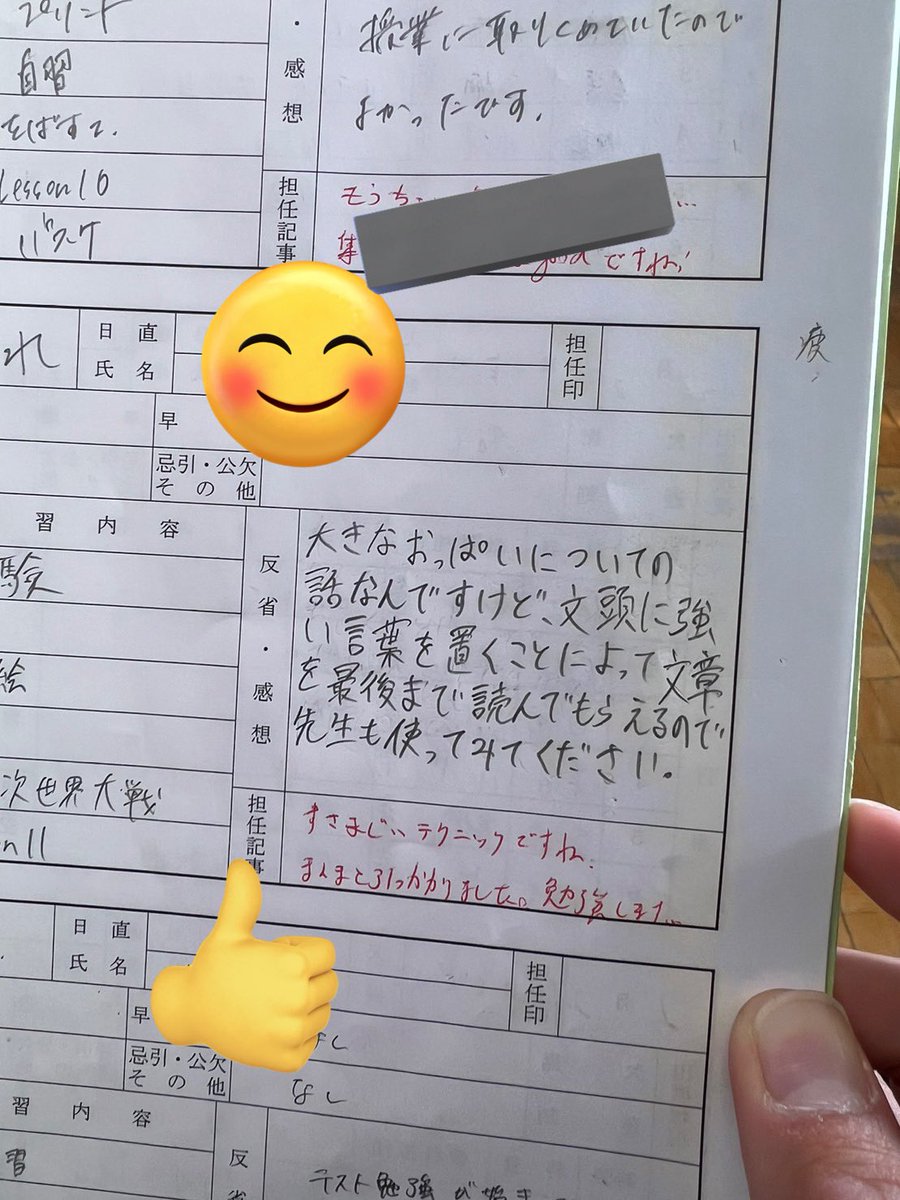 プリント
・感想
授業に取りくめていたので
よかったです。
自習
をばすて.
Lesson 10
バスケ
担任記事
もうち
集
ですね!
れ
日直
氏名
担任印
疲
早
忌引・公欠
その他
習内容
験
絵
次世界大戦
n 11
反省・感想
大きなおっぱいについての
話なんですけど、文頭に強
い言葉を置くことによって文章
を最後まで読んでもらえるので
先生も使ってみてください。
担任記事
すさまじいテクニックですね.
まんまと引っかかりました。勉強します...
日直
氏名
担任印
早
忌引・公欠
その他
なし
習内容
習
反省
テスト勉強が